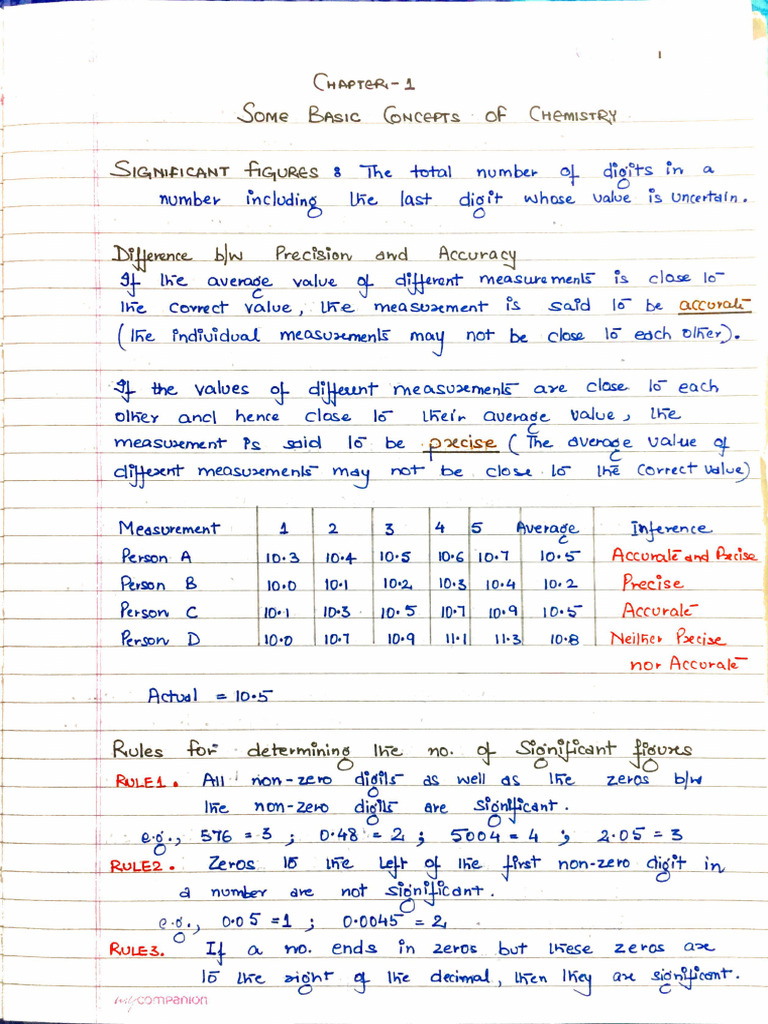 1
CHAPTER-1
SOME BASIC CONCEPTS OF CHEMISTRY
SIGNIFICANT FIGURES : The total number of digits in a
number including the last digit whose value is uncertain.
Difference b/w Precision and Accuracy
If the average value of different measurements is close to
the correct value, the measurement is said to be accurate
(the individual measurements may not be close to each other).
If the values of different measurements are close to each
other and hence close to their average value, the
measurement is said to be precise (The average value of
different measurements may not be close to the correct value)
Measurement 1 2 3 4 5 Average Inference
Person A 10.3 10.4 10.5 10.6 10.7 10.5 Accurate and Precise
Person B 10.0 10.1 10.2 10.3 10.4 10.2 Precise
Person C 10.1 10.3 10.5 10.7 10.9 10.5 Accurate
Person D 10.0 10.7 10.9 11.1 11.3 10.8 Neither Precise
nor Accurate
Actual = 10.5
Rules for determining the no. of Significant figures
RULE1. All non-zero digits as well as the zeros b/w
the non-zero digits are significant.
e.g., 576 = 3 ; 0.48 = 2 ; 5004 = 4 ; 2.05 = 3
RULE2. Zeros to the left of the first non-zero digit in
a number are not significant.
e.g., 0.05 = 1 ; 0.0045 = 2
RULE3. If a no. ends in zeros but these zeros are
to the right of the decimal, then they are significant.
my companion